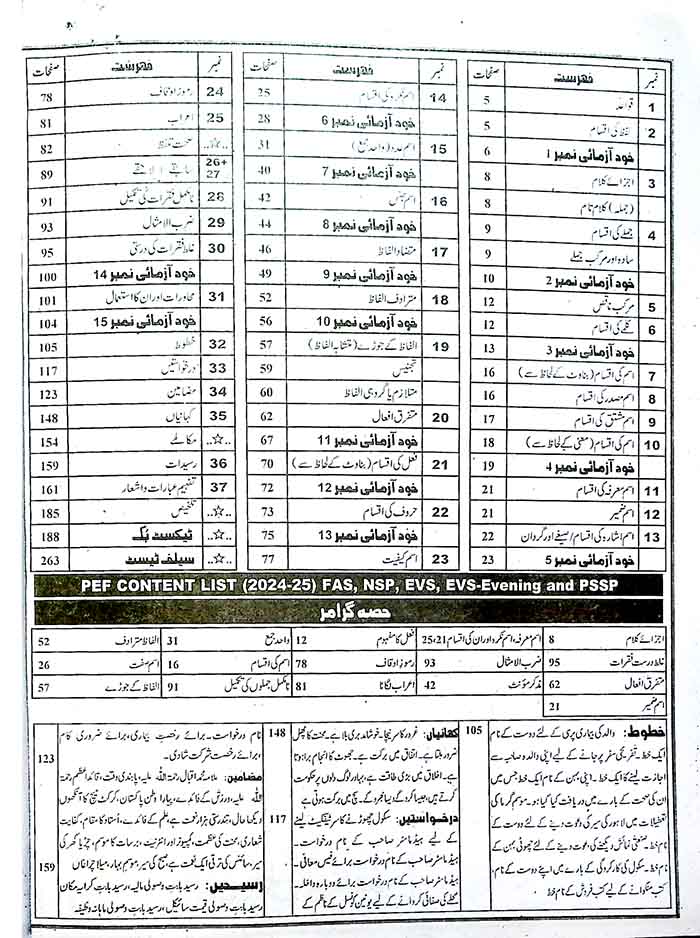 نمبر فہرست صفحات
1 قواعد 5
2 لفظ کی اقسام 5
خود آزمائی نمبر 1 6
3 اجزائے کلام 8
(جملہ) کلام تام 8
4 جملے کی اقسام 9
سادہ اور مرکب جملے 9
خود آزمائی نمبر 2 10
5 مرکب ناقص 12
6 کلمے کی اقسام 12
خود آزمائی نمبر 3 13
7 اسم کی اقسام (بناوٹ کے لحاظ سے) 16
8 اسم مصدر کی اقسام 16
9 اسم مشتق کی اقسام 17
10 اسم کی اقسام (معنی کے لحاظ سے) 18
خود آزمائی نمبر 4 19
11 اسم معرفہ کی اقسام 21
12 اسم ضمیر 21
13 اسم اشارہ کی اقسام/صیغے اور گردان 22
خود آزمائی نمبر 5 23
نمبر فہرست صفحات
14 اسم نکرہ کی اقسام 25
خود آزمائی نمبر 6 28
15 اسم عدد (واحد جمع) 31
خود آزمائی نمبر 7 40
16 اسم جنس 42
خود آزمائی نمبر 8 44
17 متضاد الفاظ 46
خود آزمائی نمبر 9 49
18 مترادف الفاظ 52
خود آزمائی نمبر 10 56
19 الفاظ کے جوڑے (متشابہ الفاظ) 57
تجنیس 59
متلازم یا گروہی الفاظ 60
20 متفرق افعال 62
خود آزمائی نمبر 11 67
21 فعل کی اقسام (بناوٹ کے لحاظ سے) 70
خود آزمائی نمبر 12 72
22 حروف کی اقسام 73
خود آزمائی نمبر 13 75
23 اسم کیفیت 77
نمبر فہرست صفحات
24 رموز اوقاف 78
25 اعراب 81
..☆.. صحت تلفظ 82
26+27 سابقے لاحقے 89
28 نامکمل فقرات کی تکمیل 91
29 ضرب الامثال 93
30 غلط فقرات کی درستی 95
خود آزمائی نمبر 14 100
31 محاورات اور ان کا استعمال 101
خود آزمائی نمبر 15 104
32 خطوط 105
33 درخواستیں 117
34 مضامین 123
35 کہانیاں 148
..☆.. مکالمے 154
36 رسیدات 159
37 تفہیم عبارات و اشعار 161
..☆.. تلخیص 185
..☆.. ٹیکسٹ بُک 188
..☆.. سیلف ٹیسٹ 263
PEF CONTENT LIST (2024-25) FAS, NSP, EVS, EVS-Evening and PSSP
حصہ گرامر
اجزائے کلام 8 اسم معرفہ، اسم نکرہ اور ان کی اقسام 25،21 فعل کا مفہوم 12 واحد جمع 31 الفاظ مترادف 52
غلط درست فقرات 95 ضرب الامثال 93 رموز اوقاف 78 اسم کی اقسام 16 اسم صفت 26
متفرق افعال 62 مذکر مؤنث 42 اعراب لگانا 81 نامکمل جملوں کی تکمیل 91 الفاظ کے جوڑے 57
اسم ضمیر 21
خطوط: والد کی بیماری پرسی کے لئے دوست کے نام 105
ایک خط۔ تفریحی سفر پر جانے کے لیے اپنی والدہ صاحبہ سے
اجازت لینے کا خط۔ اپنی بہن کے نام ایک خط جس میں
ان کی صحت کے بارے میں دریافت کیا گیا ہو۔ موسم گرما کی
تعطیلات میں لاہور کی سیر کی دعوت دینے کے لئے دوست کے
نام خط۔ صنعتی نمائش دیکھنے کی دعوت دینے کے لئے چھوٹی بہن کے
نام خط۔ سکول کی کارکردگی کے بارے میں اپنے دوست کے نام۔
کتب منگوانے کے لیے کتب فروش کے نام خط
کہانیاں: غرور کا سر نیچا۔ خوشامد بری بلا ہے۔ محنت کا پھل 148
ضرور ملتا ہے۔ اتفاق میں برکت ہے۔ جھوٹ کا انجام برا ہوتا
ہے۔ اخلاق میں بڑی طاقت ہے، بہادر لوگ دلوں پر حکومت
کرتے ہیں، جیسا کرو گے ویسا بھرو گے۔ سچ میں برکت ہوتی ہے
درخواستیں: سکول چھوڑنے کا سرٹیفکیٹ لینے 117
کے لیے ہیڈ ماسٹر صاحب کے نام درخواست۔
ہیڈ ماسٹر صاحب کے نام درخواست برائے فیس معافی۔
ہیڈ ماسٹر صاحب کے نام درخواست برائے دوبارہ داخلہ۔
محلے کی صفائی کروانے کے لیے یونین کونسل کے ناظم کے
نام درخواست۔ برائے رخصت بیماری، برائے ضروری کام
، برائے رخصت شرکت شادی۔ 123
مضامین: علامہ محمد اقبال رحمتہ اللہ علیہ، پابندی وقت، قائد اعظم رحمتہ
اللہ علیہ، ورزش کے فائدے، ہمارا وطن پاکستان، کرکٹ میچ کا آنکھوں
دیکھا حال، تندرستی ہزار نعمت ہے، علم کے فائدے، استاد کا مقام، کفایت
شعاری، محنت کی عظمت، کمپیوٹر اور انٹرنیٹ، برسات کا موسم، چڑیا گھر کی
سیر، سائنس کی ترقی ایک نعمت ہے، صبح کی سیر، موسم بہار، میلا چراغاں 159
رسیدیں: رسید بابت وصولی مالیہ، رسید بابت کرایہ مکان
رسید بابت وصولی قیمت سائیکل، رسید بابت وصولی ماہانہ وظیفہ